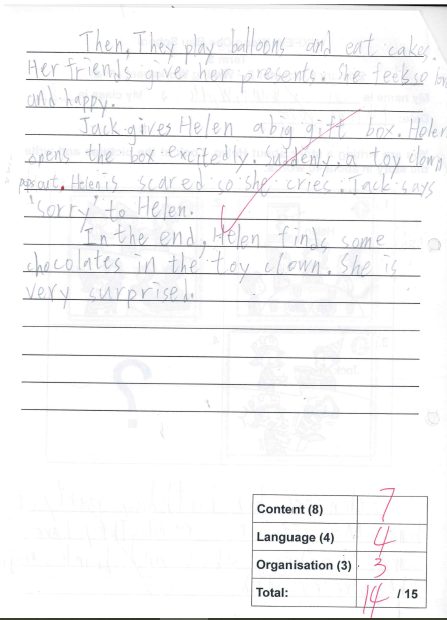 Then, They play balloons and eat cakes.
Her friends give her presents. She feels so
and happy.
Jack gives Helen a big gift box. Helen
opens the box excitedly. Suddenly, a toy clown
pops out. Helen is scared so she cries. Jack says
"sorry" to Helen.
In the end, Helen finds some
chocolates in the toy clown. She is
very surprised.
Content (8) 7
Language (4) 4
Organisation (3) 3
Total: 14 / 15